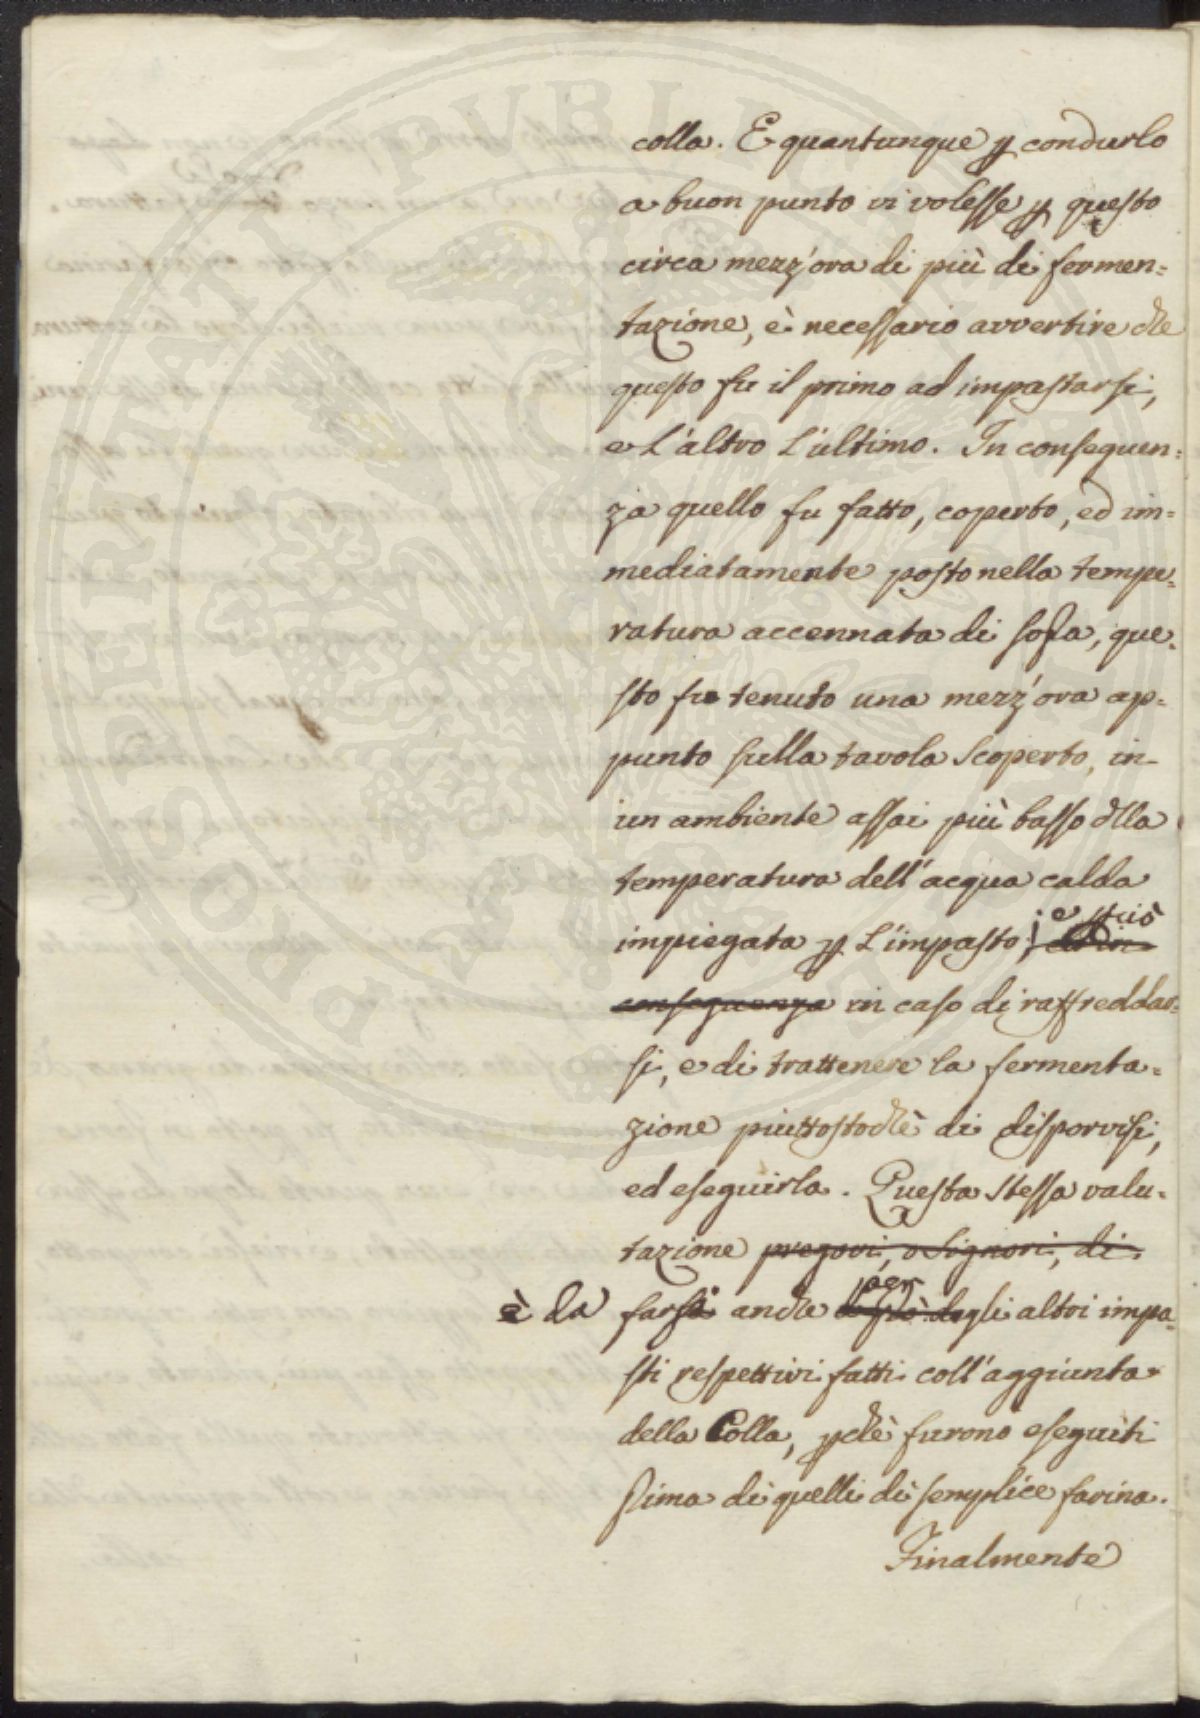 colla. E quantunque p condurlo
a buon punto vi volesse p questo
circa mezz'ora di più di fermen=
tazione, è necessario avvertire che
questo fu il primo ad impastarsi,
e l'altro l'ultimo. In conseguen=
za quello fu fatto, coperto, ed im=
mediatamente posto nella tempe=
ratura accennata di sopra, que=
sto fu tenuto una mezz'ora ap=
punto sulla tavola scoperto, in
un ambiente assai più basso dlla
temperatura dell'acqua calda
impiegata p l'impasto; e pciò ed in
conseguenza in caso di raffreddar=
si, e di trattenere la fermenta=
zione piuttostochè di disporvisi,
ed eseguirla. Questa stessa valu=
tazione pregovi, o Signori, di
è da farsi anche per degli altri impa=
sti respettivi fatti coll'aggiunta
della Colla, pchè furono eseguiti
Prima di quelli di semplice farina.
Finalmente
PROSPERITATI PVBLICAE